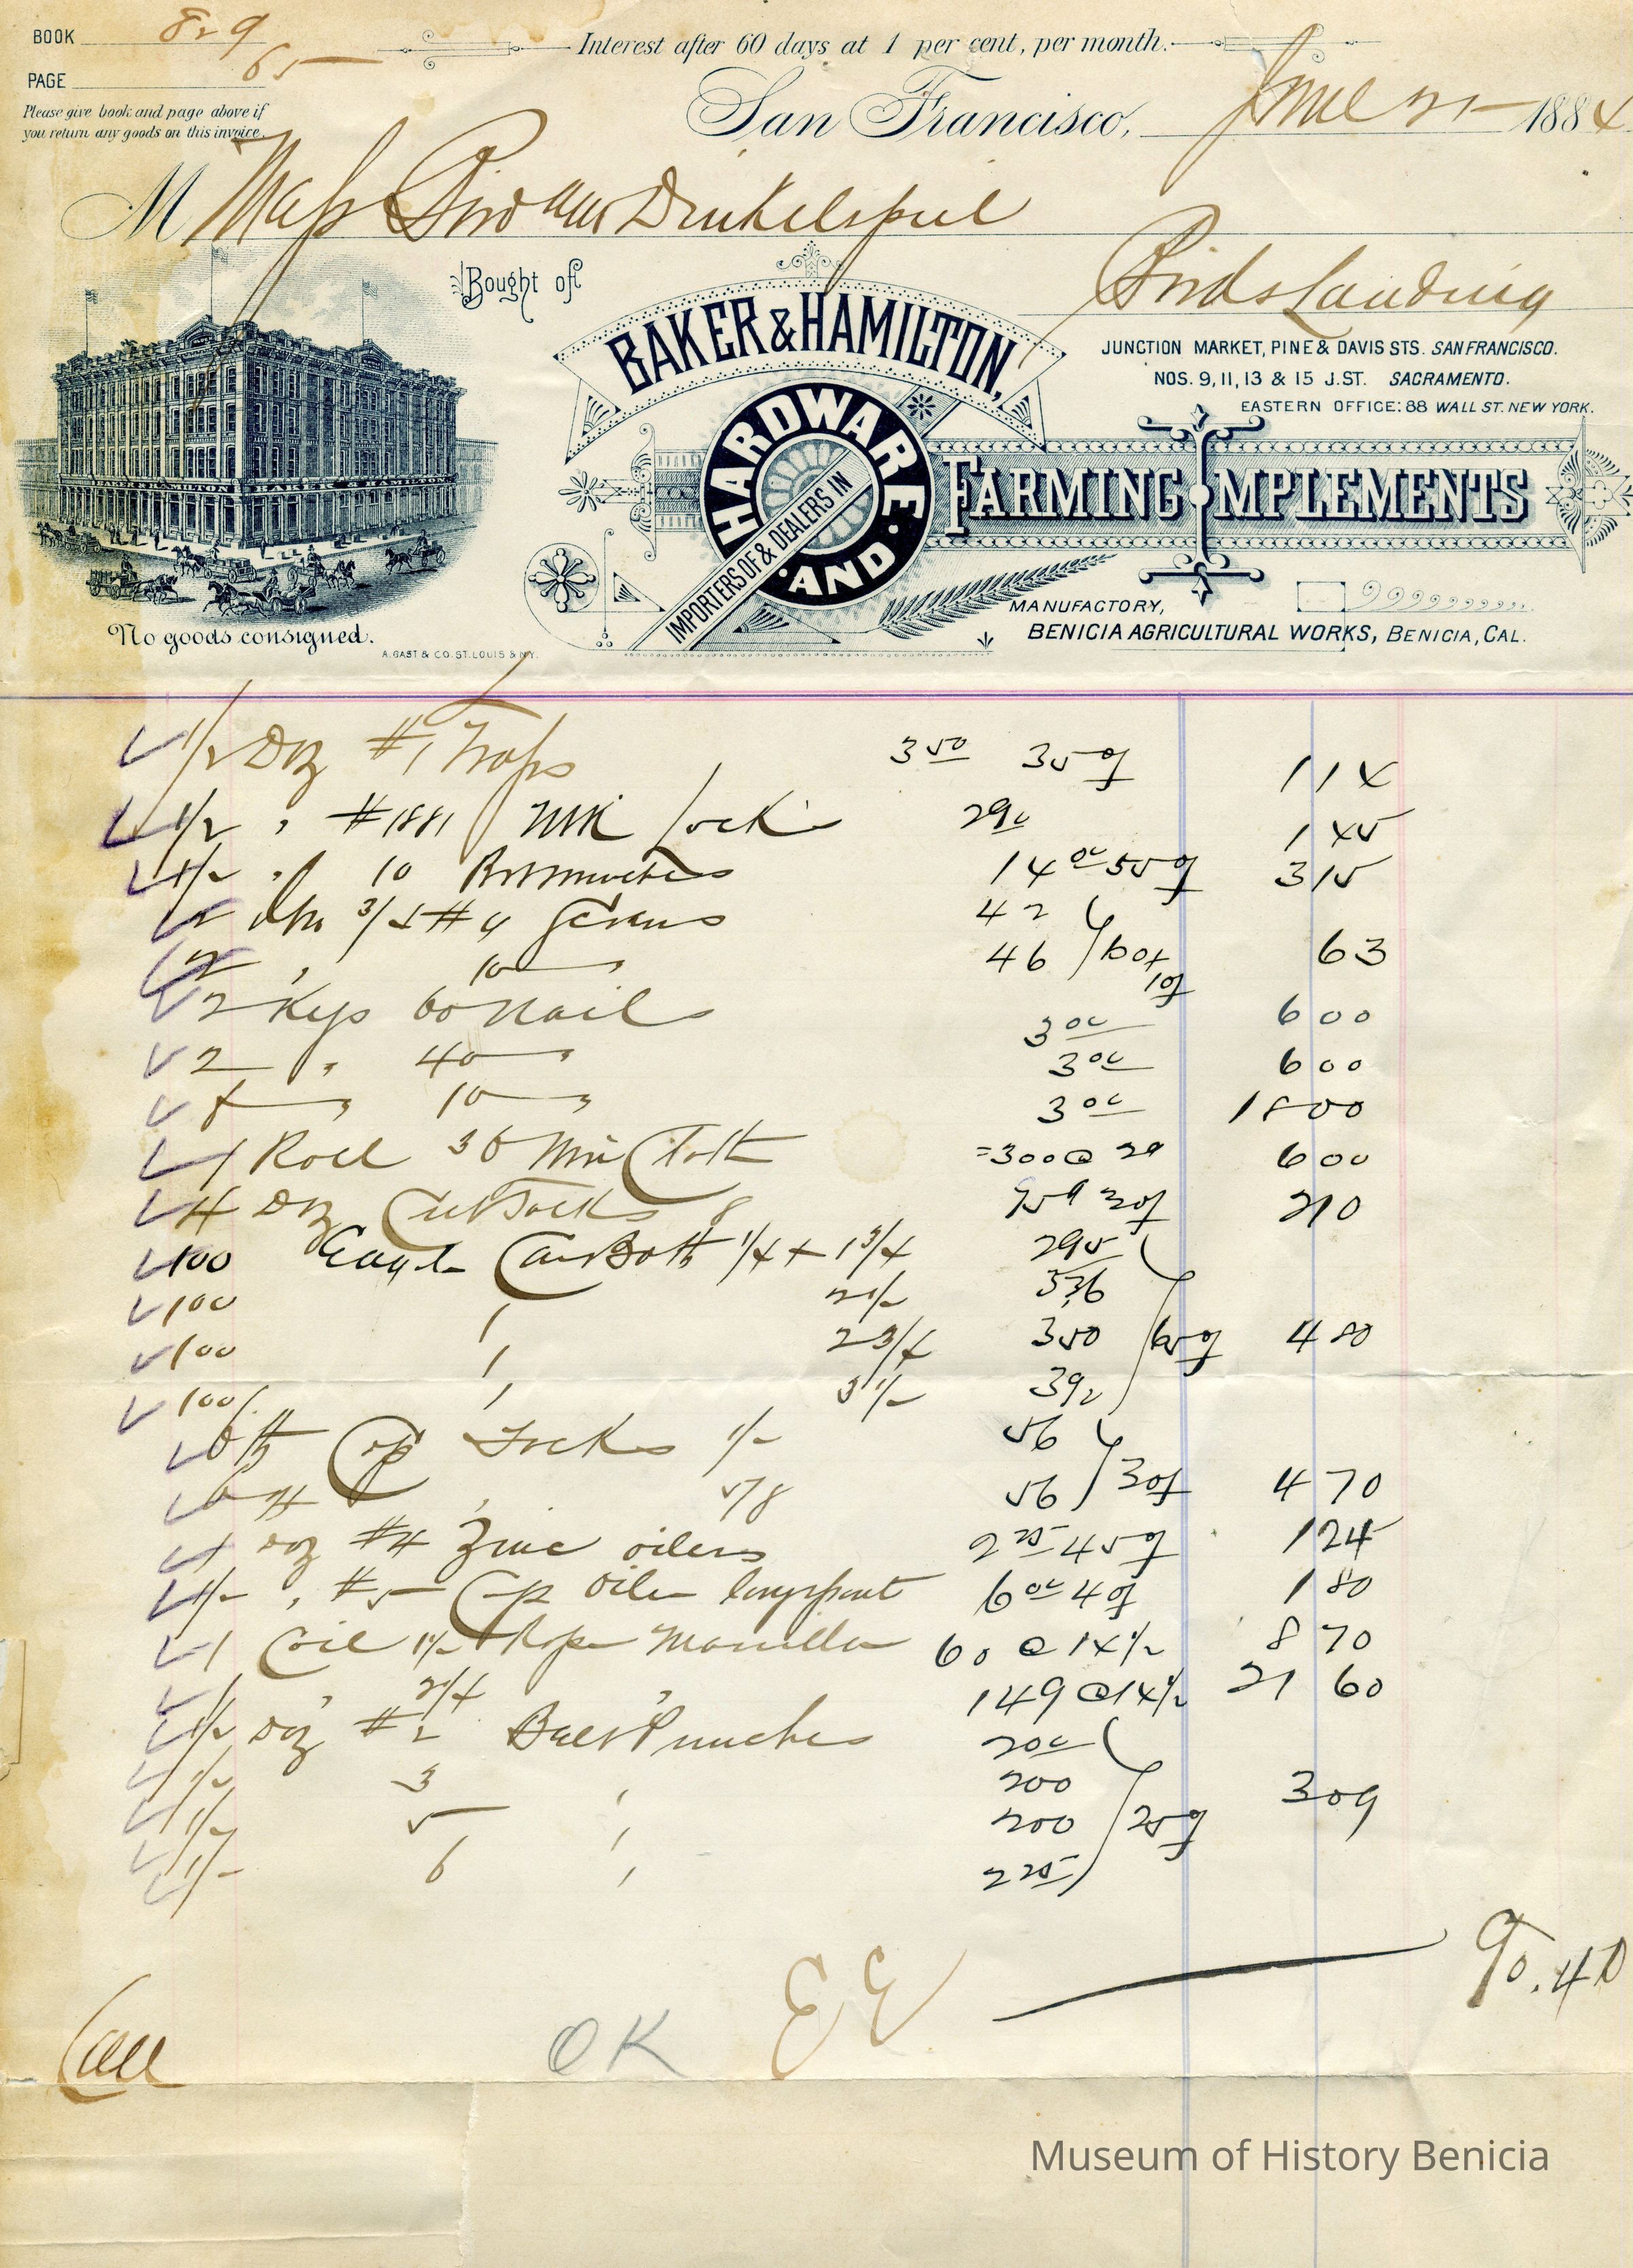 BOOK 829
65
PAGE
Interest after 60 days at 1 per cent, per month.
Please give book and page above if
you return any goods on this invoice.
San Francisco, June 21 1884
M Bird Dinkelspiel
Birds Landing
Bought of
BAKER & HAMILTON,
JUNCTION MARKET, PINE & DAVIS STS. SAN FRANCISCO.
NOS. 9, 11, 13 & 15 J. ST. SACRAMENTO.
EASTERN OFFICE: 88 WALL ST. NEW YORK.
IMPORTERS OF & DEALERS IN
HARDWARE AND FARMING IMPLEMENTS
MANUFACTORY,
BENICIA AGRICULTURAL WORKS, BENICIA, CAL.
No goods consigned.
A. GAST & CO. ST. LOUIS & N.Y.
1/2 Doz #1 Traps 3 50 35 114
1/2 " #1881 lock 290 145
1/2 " 10 14 00 55 315
2 #9 Screws 42
2 " 10 " 46 10 63
2 Kegs 60 Nails 3 00 600
2 " 40 " 3 00 600
" 10 " 3 00 1800
1 Roll 36 Cloth =300 @ 600
4 Doz Cut Tacks 8 210
100 Eagle 1/4 x 1 3/4 295
100 " 2 1/2 336
100 " 2 3/4 350 65 480
100 " 3 1/2 392
6 lb Cop Tacks 1/2 56
6 " " 5/8 56 30 470
1 Doz #4 Zinc oilers 2 25 45 124
1/2 " #5 Cop Oiler long spout 6 00 40 180
1 Coil 1 1/2 Rope Manilla 60 @ 14 1/2 870
1 " " 149 @ 14 1/2 21 60
1/2 Doz #2 Belt Punches 200
1/2 3 200
1/2 5 " 200 25 309
1/2 6 " 2 25
90.40
OK
EE
Museum of History Benicia